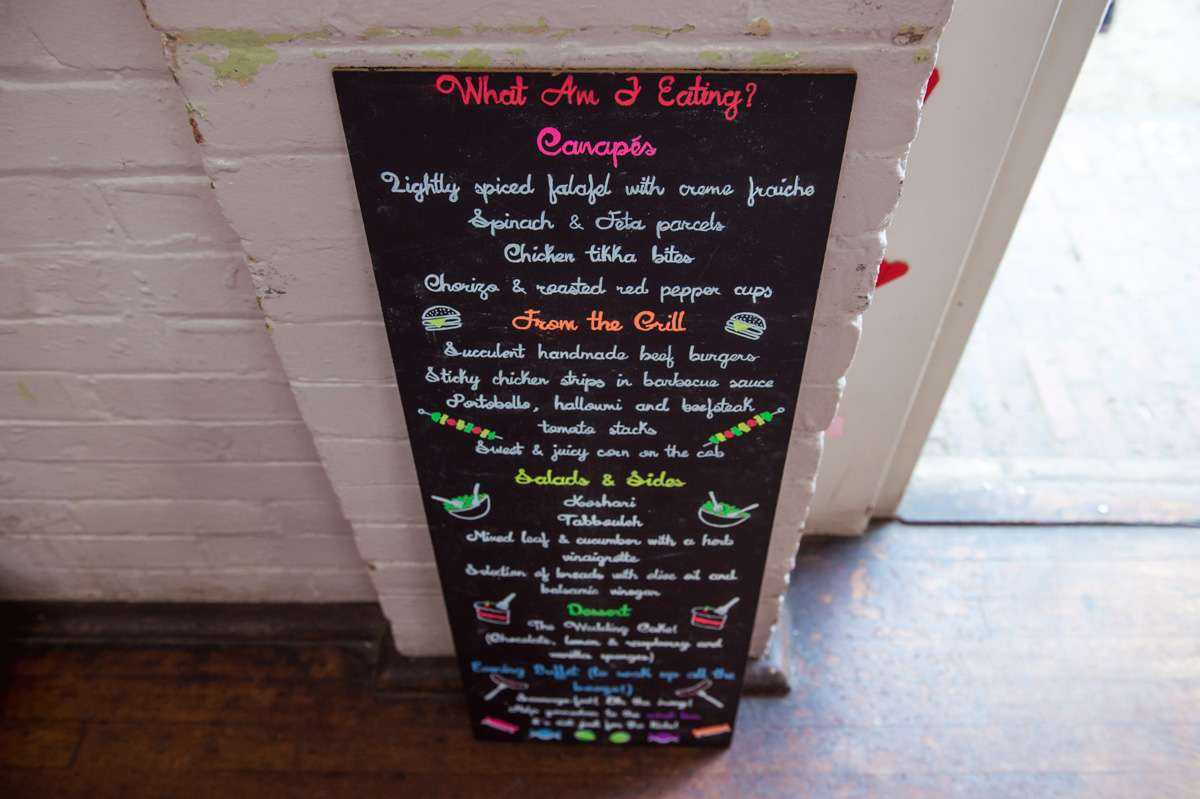 What Am I Eating?
Canapés
Lightly spiced falafel with creme fraiche
Spinach & Feta parcels
Chicken tikka bites
Chorizo & roasted red pepper cups
From the Grill
Succulent handmade beef burgers
Sticky chicken strips in barbecue sauce
Portobello, halloumi and beefsteak
tomato stacks
Sweet & juicy corn on the cob
Salads & Sides
Koshari
Tabbouleh
Mixed leaf & cucumber with a herb
vinaigrette
Selection of breads with olive oil and
balsamic vinegar
Dessert
The Wedding Cake!
(Chocolate, lemon & raspberry and
vanilla sponges)
Evening Buffet (to soak up all the
booze!)
Sausage-fest! Oh the irony!
Help yourselves to the
it's not just for the kids!